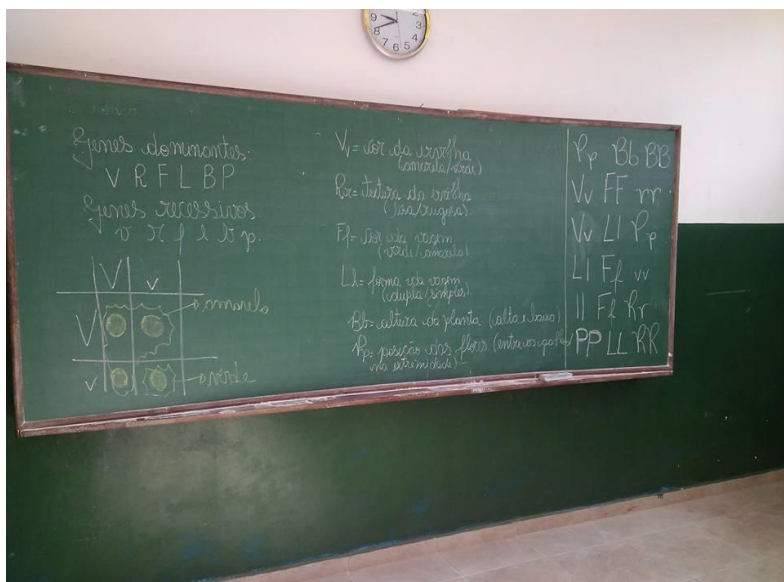 Genes dominantes:
V R F L B P
Genes recessivos
v r f l b p.
V v
V
amarela
v
verde
Vv= cor da ervilha
(amarela/verde)
Rr= textura da ervilha
(lisa/rugosa)
Ff= cor da vagem
(verde/amarela)
Ll= forma da vagem
(dupla/simples)
Bb= altura da planta (alta e baixa)
Pp= posição das flores (entre os
na extremidade)
Pp Bb BB
Vv FF rr
Vv Ll Pp
Ll Ff vv
ll Ff Rr
PP LL RR
9
8
7
6
5
4
3